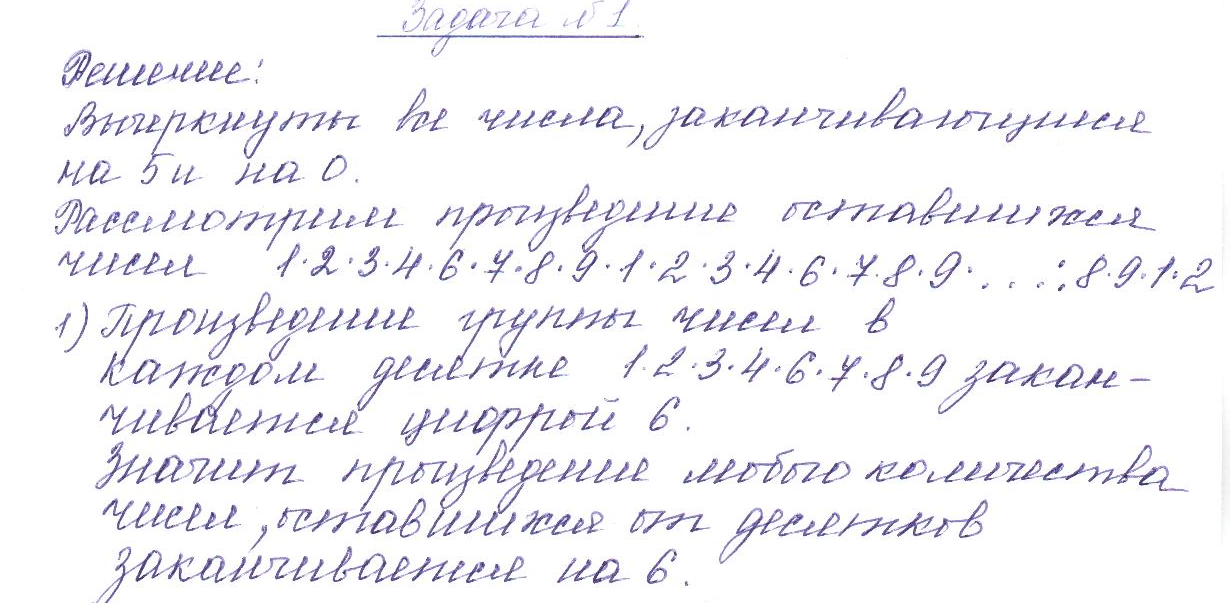 Задача №1.
Решение:
Вычеркнуты все числа, заканчивающиеся
на 5 и на 0.
Рассмотрим произведение оставшихся
чисел 1·2·3·4·6·7·8·9·1·2·3·4·6·7·8·9·...·8·9·1·2
1) Произведение группы чисел в
каждом десятке 1·2·3·4·6·7·8·9 закан-
чивается цифрой 6.
Значит произведение любого количества
чисел, оставшихся от десятков
заканчивается на 6.